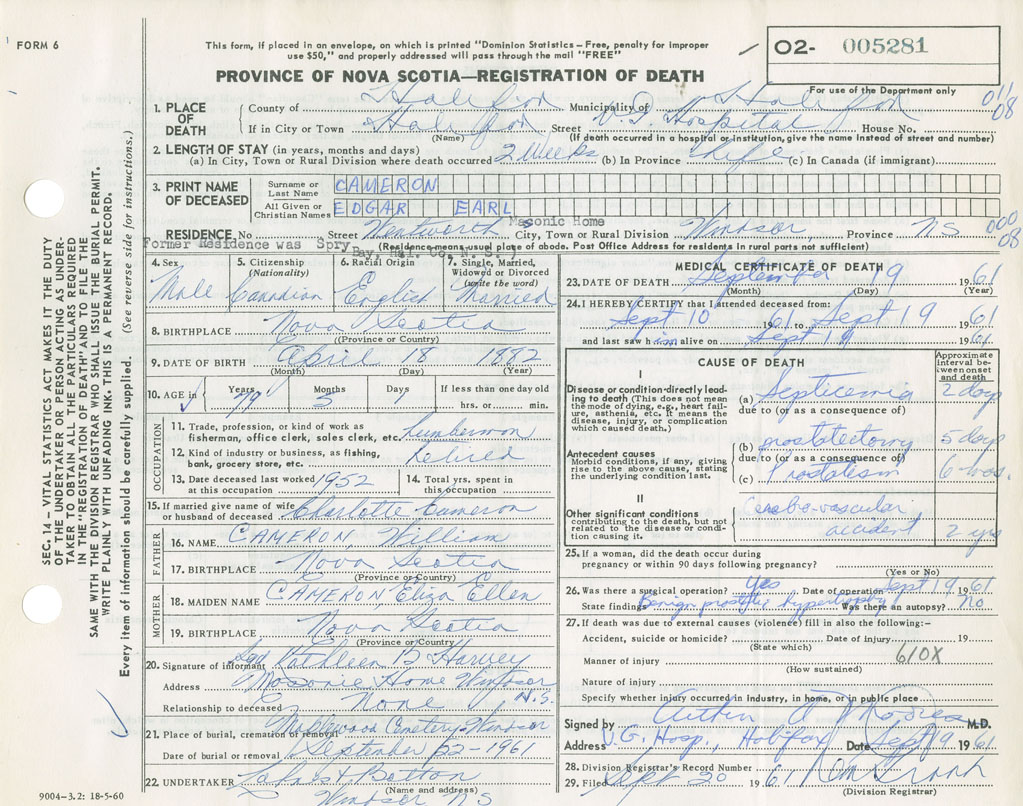 FORM 6
This form, if placed in an envelope, on which is printed "Dominion Statistics—Free, penalty for improper
use $50," and properly addressed will pass through the mail "FREE"
02- 005281
PROVINCE OF NOVA SCOTIA—REGISTRATION OF DEATH
For use of the Department only
SEC. 14—VITAL STATISTICS ACT MAKES IT THE DUTY
OF THE UNDERTAKER OR PERSON ACTING AS UNDER-
TAKER TO OBTAIN ALL THE PARTICULARS REQUIRED
IN THE "REGISTRATION OF DEATH" AND TO FILE THE
SAME WITH THE DIVISION REGISTRAR WHO SHALL ISSUE THE BURIAL PERMIT.
WRITE PLAINLY WITH UNFADING INK. THIS IS A PERMANENT RECORD.
Every item of information should be carefully supplied. (See reverse side for instructions.)
1. PLACE OF DEATH
County of Halifax Municipality of Halifax
011/08
If in City or Town Halifax Street V. G. Hospital House No.
(Name) (If death occurred in a hospital or institution, give the name instead of street and number)
2. LENGTH OF STAY (in years, months and days)
(a) In City, Town or Rural Division where death occurred 2 weeks (b) In Province Life (c) In Canada (if immigrant)
3. PRINT NAME OF DECEASED
Surname or Last Name CAMERON
All Given or Christian Names EDGAR EARL
Masonic Home
RESIDENCE, No Street Wentworth City, Town or Rural Division Windsor Province NS
000/08
Former Residence was Spry Bay, Hal. Co. N. S. )
(Residence means usual place of abode. Post Office Address for residents in rural parts not sufficient)
4. Sex Male
5. Citizenship (Nationality) Canadian
6. Racial Origin English
7. Single, Married, Widowed or Divorced (write the word) Married
8. BIRTHPLACE Nova Scotia
(Province or Country)
9. DATE OF BIRTH April 18 1882
(Month) (Day) (Year)
10. AGE in Years 79 Months 3 Days 1 If less than one day old
hrs. or min.
OCCUPATION
11. Trade, profession, or kind of work as
fisherman, office clerk, sales clerk, etc. Lumberman
12. Kind of industry or business, as fishing,
bank, grocery store, etc. Retired
13. Date deceased last worked at this occupation 1952
14. Total yrs. spent in this occupation
15. If married give name of wife
or husband of deceased Charlotte Cameron
FATHER
16. NAME CAMERON, William
17. BIRTHPLACE Nova Scotia
(Province or Country)
MOTHER
18. MAIDEN NAME CAMERON Eliza Ellen
19. BIRTHPLACE Nova Scotia
(Province or Country)
20. Signature of informant Sgd Kathleen B Harvey
Address Masonic Home Windsor N.S.
Relationship to deceased None
21. Place of burial, cremation or removal Maplewood Cemetery Windsor
Date of burial or removal September 22-1961
22. UNDERTAKER
(Name and address)
Windsor NS
9004-3.2: 18-5-60
MEDICAL CERTIFICATE OF DEATH
23. DATE OF DEATH September 19 1961
(Month) (Day) (Year)
24. I HEREBY CERTIFY that I attended deceased from:
Sept 10 1961 to Sept 19 1961
and last saw him alive on Sept 19 1961
CAUSE OF DEATH
Approximate interval between onset and death
I
Disease or condition directly leading to death (This does not mean
the mode of dying, e.g., heart failure, asthenia, etc. It means the
disease, injury, or complication
which caused death.)
(a) Septicemia 2 days
due to (or as a consequence of)
Antecedent causes
Morbid conditions, if any, giving
rise to the above cause, stating
the underlying condition last.
(b) prostatectomy 5 days
due to (or as a consequence of)
(c) Prostatism 6 mos.
II
Other significant conditions
contributing to the death, but not
related to the disease or condition causing it.
Cerebro-vascular
accident 2 yrs
25. If a woman, did the death occur during
pregnancy or within 90 days following pregnancy?
(Yes or No)
26. Was there a surgical operation? Yes Date of operation Sept 19 1961
State findings Benign prostatic hypertrophy Was there an autopsy? No
27. If death was due to external causes (violence) fill in also the following:—
Accident, suicide or homicide? Date of injury 19
(State which)
610X
Manner of injury
(How sustained)
Nature of injury
Specify whether injury occurred in industry, in home, or in public place
Signed by M.D.
Address V.G. Hosp., Halifax Date Sept 19 1961
28. Division Registrar's Record Number
29. Filed Sept 20 1961
(Division Registrar)